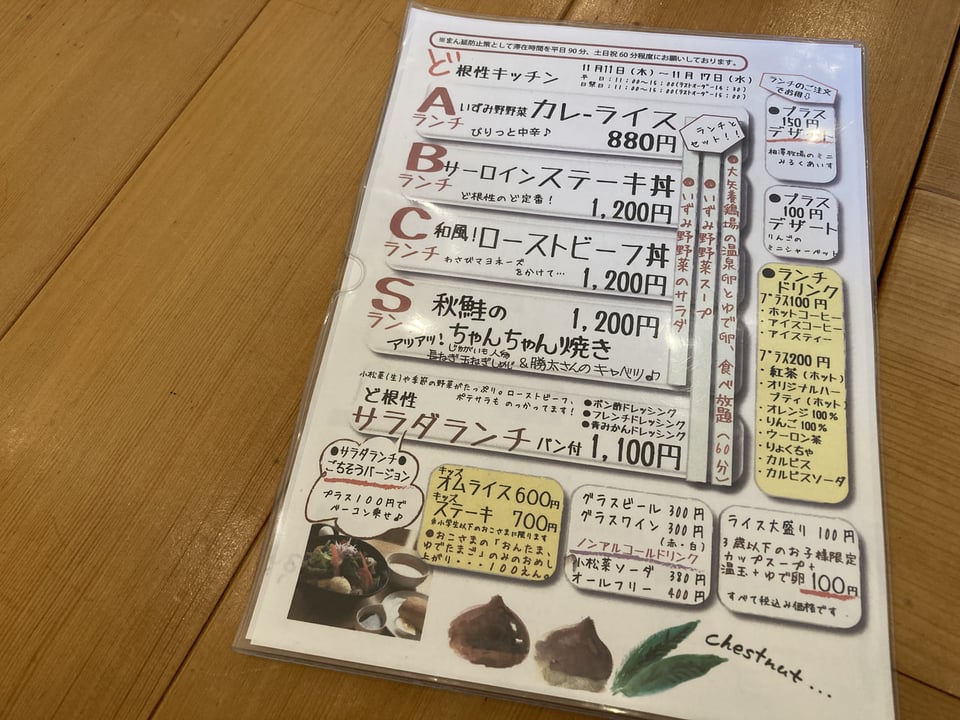 ※まん延防止策として滞在時間を平日90分、土日祝60分程度にお願いしております。
ど根性キッチン
11月11日(木)～11月17日(水)
平日:11:00～15:00(ラストオーダー14:30)
日祭日:11:00～15:00(ラストオーダー15:00)
Aランチ
いずみ野野菜カレーライス
ぴりっと中辛♪
880円
Bランチ
サーロインステーキ丼
ど根性のど定番!
1,200円
Cランチ
和風!ローストビーフ丼
わさびマヨネーズ
をかけて…
1,200円
Sランチ
秋鮭の
1,200円
ちゃんちゃん焼き
アツアツ!
じゃがいも人参
長ねぎ玉ねぎしめじ
&勝太さんのキャベツ♪
ランチと
セット!!
●大矢養鶏場の温泉卵とゆで卵、食べ放題(60分)
●いずみ野野菜スープ
●いずみ野野菜のサラダ
小松菜(生)や季節の野菜がたっぷり。ローストビーフ、
ポテサラものっかってます!
ど根性
サラダランチ
パン付
1,100円
●ポン酢ドレッシング
●フレンチドレッシング
●青みかんドレッシング
●サラダランチ●
ごちそうバージョン
プラス100円で
ベーコン乗せ♪
キッズ
オムライス600円
キッズ
ステーキ 700円
※小学生以下のおこさまに限ります
●おこさまの「おんたま、
ゆでたまご」のみのおめし
上がり・・・100えん。
グラスビール 300円
グラスワイン 300円
(赤・白)
ノンアルコールドリンク
小松菜ソーダ 380円
オールフリー 400円
ライス大盛り 100円
3歳以下のお子様限定
カップスープ+
温玉+ゆで卵100円
すべて税込み価格です
ランチのご注文
でお得♫
●プラス
150円
デザート
相澤牧場のミニ
みるくあいす
●プラス
100円
デザート
りんごの
ミニシャーベット
●ランチ
ドリンク
プラス100円
・ホットコーヒー
・アイスコーヒー
・アイスティー
プラス200円
・紅茶(ホット)
・オリジナルハー
ブティ(ホット)
・オレンジ100%
・りんご100%
・ウーロン茶
・りょくちゃ
・カルピス
・カルピスソーダ
chestnut...